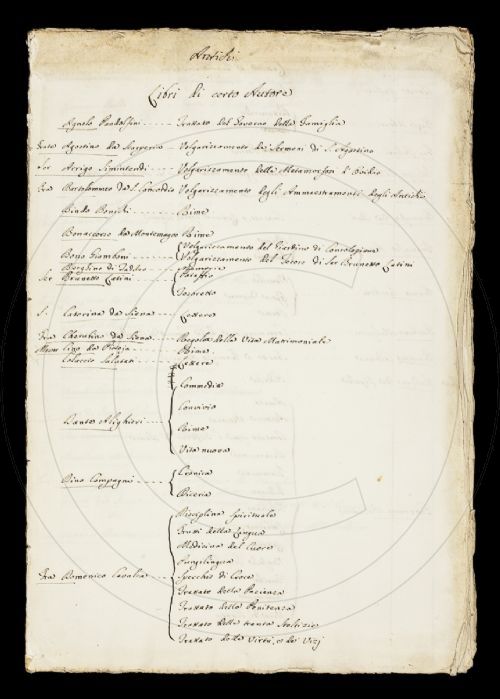 Antichi
Libri di certo Autore
Agnolo Pandolfini - - - - Trattato del Governo della Famiglia
Frate Agostino da Scarperia - - Volgarizzamento dei Sermoni di S. Agostino
Ser Arrigo Simintendi - - Volgarizzamento della Metamorfosi d' Ovidio
Fra Bartolommeo da S. Concordio Volgarizzamento degli Ammaestramenti degli Antichi
Bindo Bonichi - - - - - Rime
Bonaccorso da Montemagno Rime
Bono Giamboni - - - - { Volgarizzamento del Giardino di Consolazione
Volgarizzamento del Tesoro di Ser Brunetto Latini
Borghino di Taddeo - - - -
Ser Brunetto Latini - - - - { Pataffio
Tesoretto
S. Caterina da Siena - - - Lettere
Fra Cherubino da Siena - - - Regola della Vita Matrimoniale
Messer Cino da Pistoja - - - - Rime
Coluccio Salutati - - - - Lettere
Dante Alighieri - - - { Commedia
Convivio
Rime
Vita nuova
Dino Compagni - - - - { Cronica
Diceria
Fra Domenico Cavalca - - - { Disciplina Spirituale
Frutti della Lingua
Medicina del Cuore
Pungilingua
Specchio di Croce
Trattato della Pacienza
Trattato della Penitenza
Trattato delle trenta Stoltizie
Trattato delle Virtù, e dei Vizj